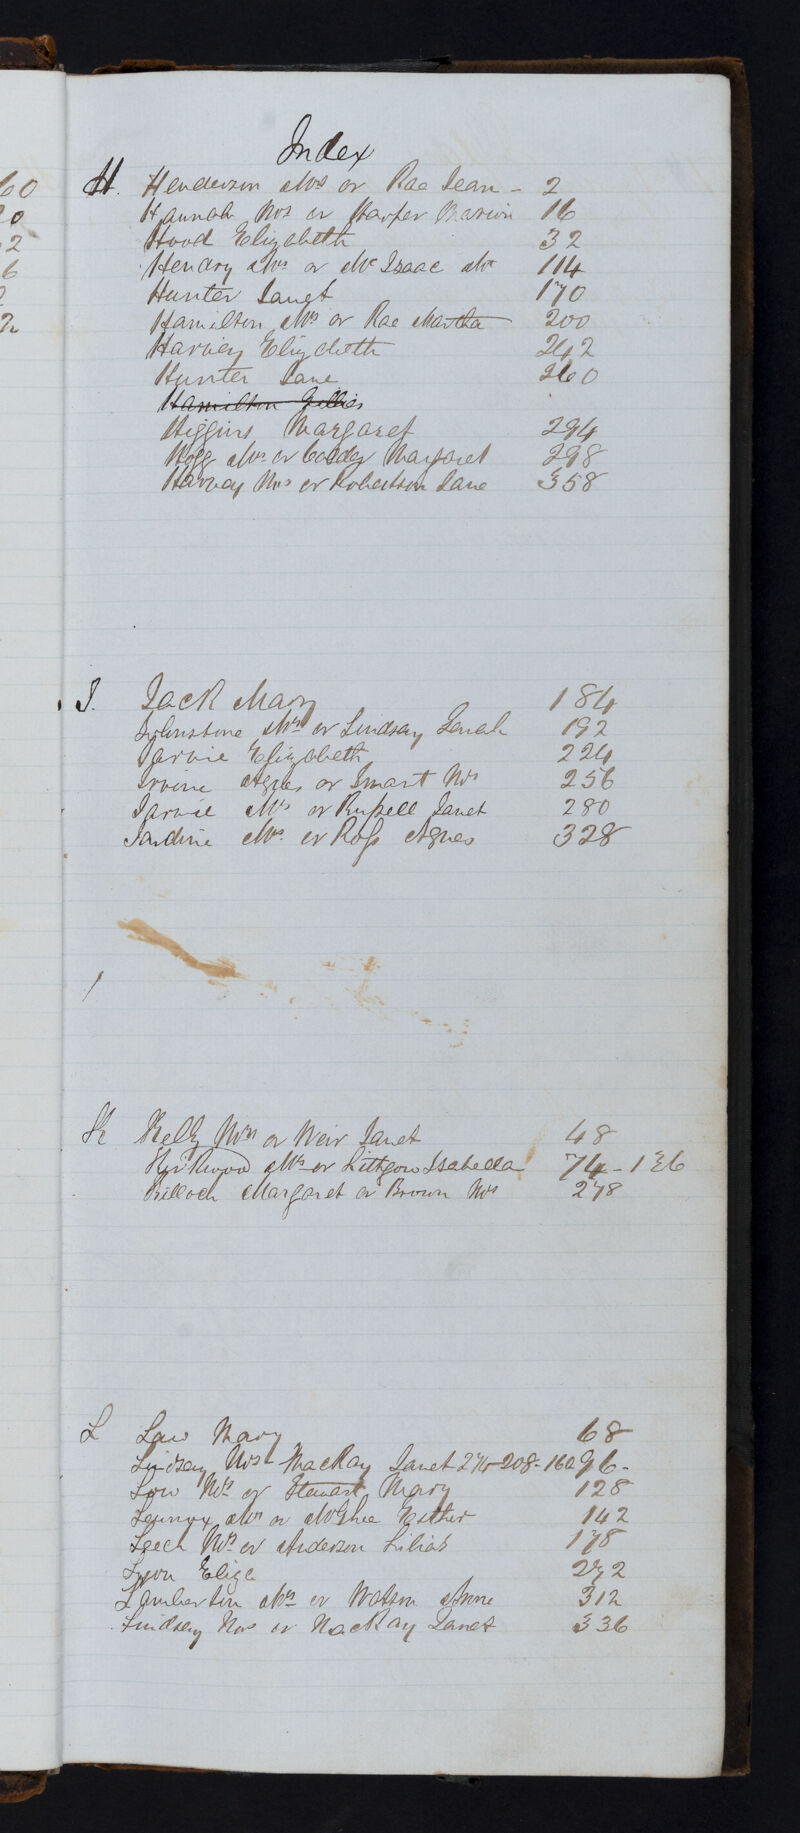 Index
H. Henderson Mrs or Rae Jean - 2
Hannah Mrs or Harper Marion 16
Hood Elizabeth 32
Hendry Mrs or McIsaac Mr 114
Hunter Janet 170
Hamilton Mrs or Rae Martha 200
Harvey Elizabeth 242
Hunter Jane 260
Hamilton Gellies
Higgins Margaret 294
Hogg Mrs or Calder Margaret 298
Harvey Mrs or Robertson Jane 358
J. Jack Mary 184
Johnstone Mrs or Lindsay Sarah 192
Jarvie Elizabeth 224
Irvine Agnes or Smart Mrs 256
Jarvie Mrs or Russell Janet 280
Jardine Mrs or Ross Agnes 328
K Kelly Mrs or Weir Janet 48
Kirkwood Mrs or Lithgow Isabella 74-136
Killoch Margaret or Brown Mrs 278
L Law Mary 68
Lindsay Mrs MacKay Janet 274-208-160 96-
Low Mrs or Stewart Mary 128
Lennox Mrs or McGhee Esther 142
Leech Mrs or Anderson Lilias 178
Lyon Eliza 272
Lamberton Mrs or Watson Anne 312
Lindsay Mrs or MacKay Janet 336
60
20
2
6
2